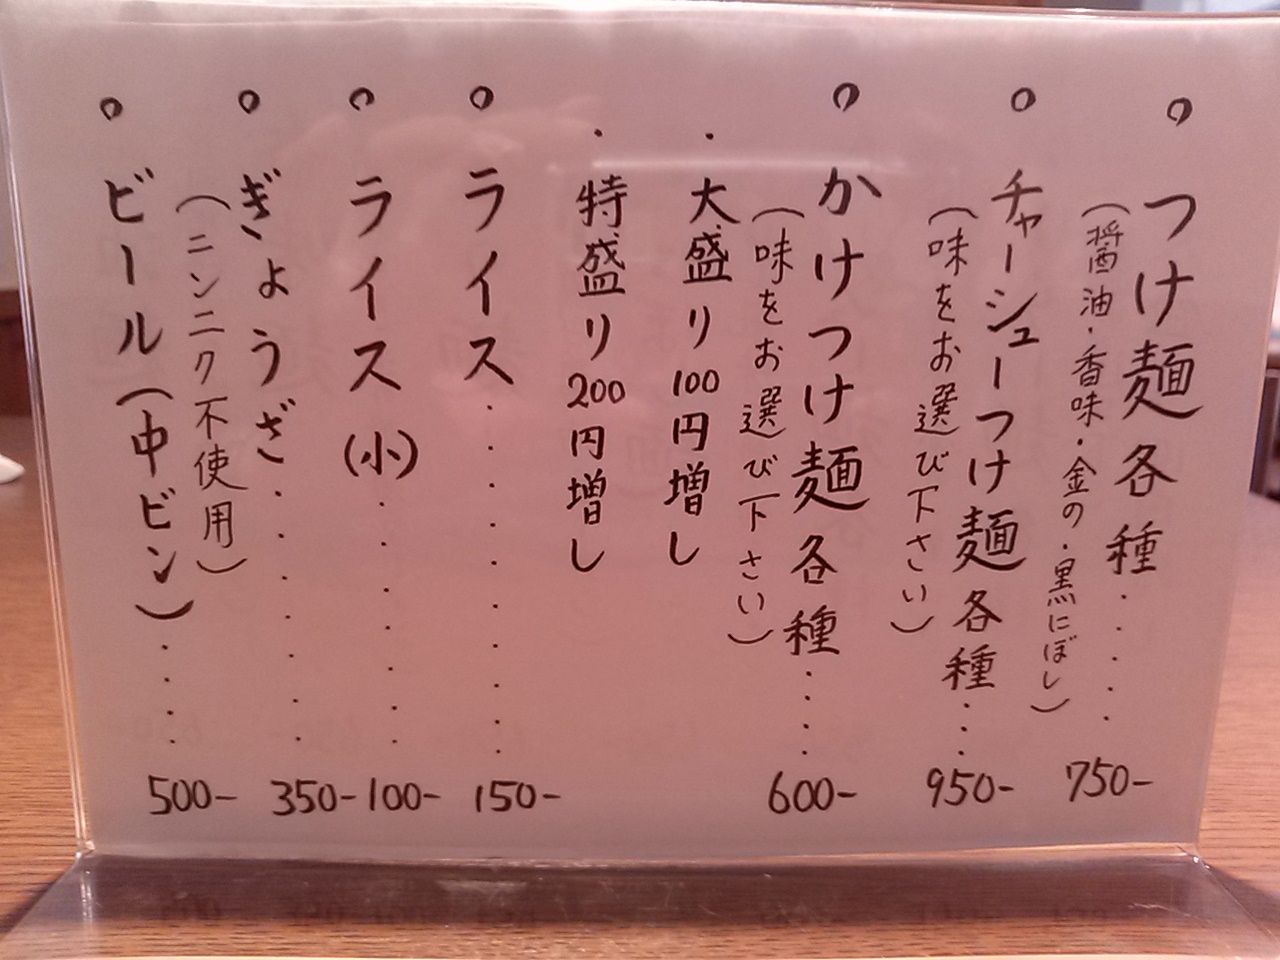 。つけ麺各種・・・・750-
(醤油・香味・金の・黒にぼし)
。チャーシューつけ麺各種・・・950-
(味をお選び下さい)
。かけつけ麺各種・・・・600-
(味をお選び下さい)
・大盛り100円増し
・特盛り200円増し
。ライス・・・・・・・・・150-
。ライス(小)・・・・・・・100-
。ぎょうざ・・・・・・・350-
(ニンニク不使用)
。ビール(中ビン)・・・・500-